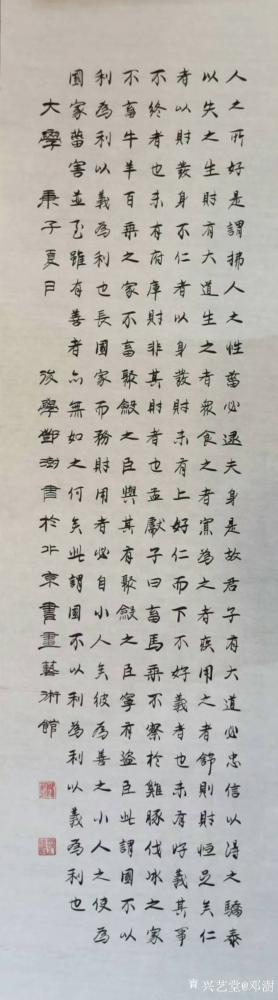 人之所好是謂拂人之性菑必逮夫身是故君子有大道必忠信以得之驕泰
以失之生財有大道生之者衆食之者寡為之者疾用之者舒則財恒足矣仁
者以財發身不仁者以身發財未有上好仁而下不好義者也未有好義其事
不終者也未有府庫財非其財者也孟獻子曰畜馬乘不察於雞豚伐冰之家
不畜牛羊百乘之家不畜聚斂之臣與其有聚斂之臣寧有盜臣此謂國不以
利為利以義為利也長國家而務財用者必自小人矣彼為善之小人之使為
國家菑害並至雖有善者亦無如之何矣此謂國不以利為利以義為利也
大學 庚子夏日 後學鄧澍書於北京書畫藝術館
兴艺堂@邓澍